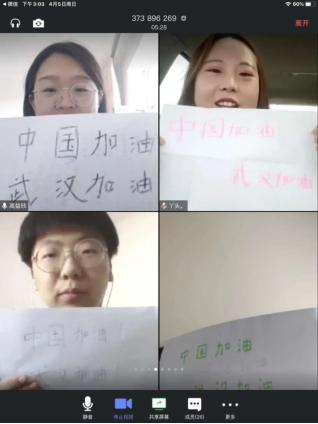 微信 下午3:03 4月5日周日
50%
373 896 269
05:28
离开
中国加油
武汉加油
中国加油
武汉加油
丫头。
中国加油!
武汉加油!
中国加油
武汉加油
静音
停止视频
共享屏幕
成员(26)
更多